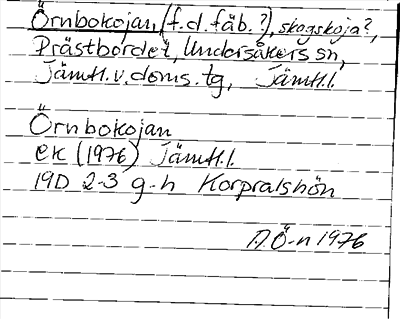 Örnbokojan, (f.d. fäb.?), skogskoja?,
Prästbordet, Undersåkers sn,
Jämtl. v. doms. tg, Jämtl. l.
Örnbokojan
ek (1976) Jämtl. l.
19D 2-3 g-h Korpralshön
A Ö-n 1976